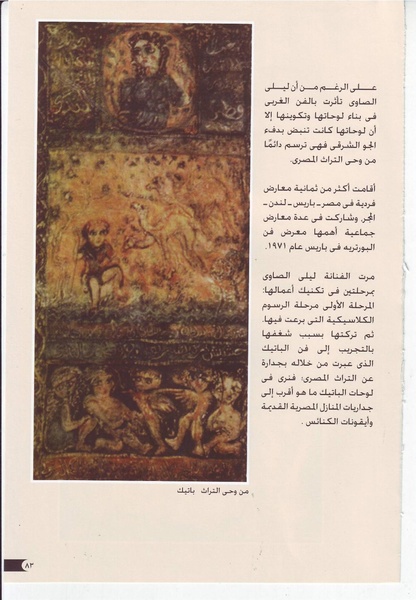 على الرغم من أن ليلى
الصاوى تأثرت بالفن الغربى
فى بناء لوحاتها وتكوينها إلا
أن لوحاتها كانت تنبض بدفء
الجو الشرقى فهى ترسم دائمًا
من وحى التراث المصرى.
أقامت أكثر من ثمانية معارض
فردية فى مصر ـ باريس ـ لندن ـ
المجر، وشاركت فى عدة معارض
جماعية أهمها معرض فن
البورتريه فى باريس عام ١٩٧١.
مرت الفنانة ليلى الصاوى
بمرحلتين فى تكنيك أعمالها:
المرحلة الأولى مرحلة الرسوم
الكلاسيكية التى برعت فيها.
ثم تركتها بسبب شغفها
بالتجريب إلى فن الباتيك
الذى عبرت من خلاله بجدارة
عن التراث المصرى؛ فنرى فى
لوحات الباتيك ما هو أقرب إلى
جداريات المنازل المصرية القديمة
وأيقونات الكنائس .
من وحى التراث باتيك
٨٣